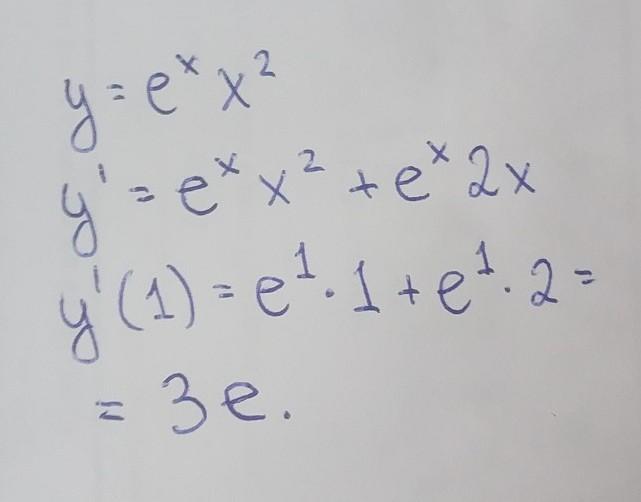 y = eˣ x²
y' = eˣ x² + eˣ 2x
y'(1) = e¹ · 1 + e¹ · 2 =
= 3e.